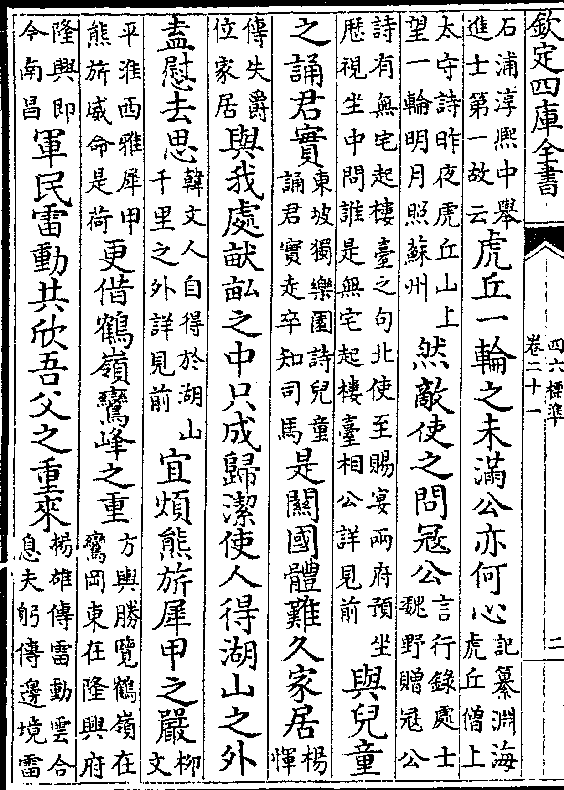 欽定四庫全書
四六標準
卷二十一
二
石浦淳熈中舉進士第一故云虎丘一輪之未滿公亦何心記纂淵海虎丘僧上
太守詩昨夜虎丘山上望一輪明月照蘇州然敵使之問冦公言行錄處士魏野贈冦公
詩有無宅起樓臺之句北使至賜宴兩府預坐歴視坐中問誰是無宅起樓臺相公詳見前與兒童
之誦君實東坡獨樂園詩兒童誦君實走卒知司馬是關國體難久家居楊惲
傳失爵位家居與我處畎畝之中只成歸潔使人得湖山之外
盍慰去思韓文人自得於湖山千里之外詳見前宜煩熊旂犀甲之嚴柳文
平淮西雅犀甲熊旂威命是荷更借鶴嶺鸞峰之重方輿勝覽鶴嶺在鸞岡東在隆興府
隆興即今南昌軍民雷動共欣吾父之重來楊雄傳雷動雲合息夫躬傳邊境雷